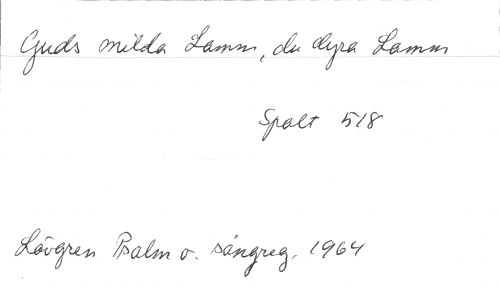 Guds milda Lamm, du dyra Lamm
Spalt 518
Lövgren Psalm o. sångreg. 1964